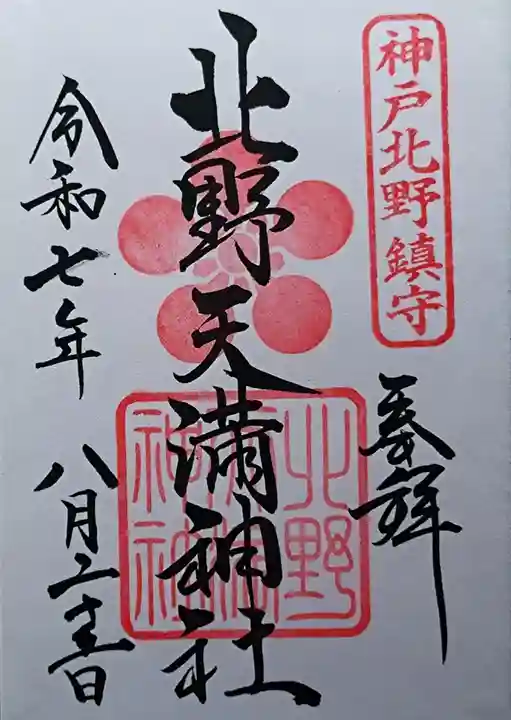 神戸北野鎮守
奉拝
北野天満神社
北野
天満
神社
令和七年 八月二十五日